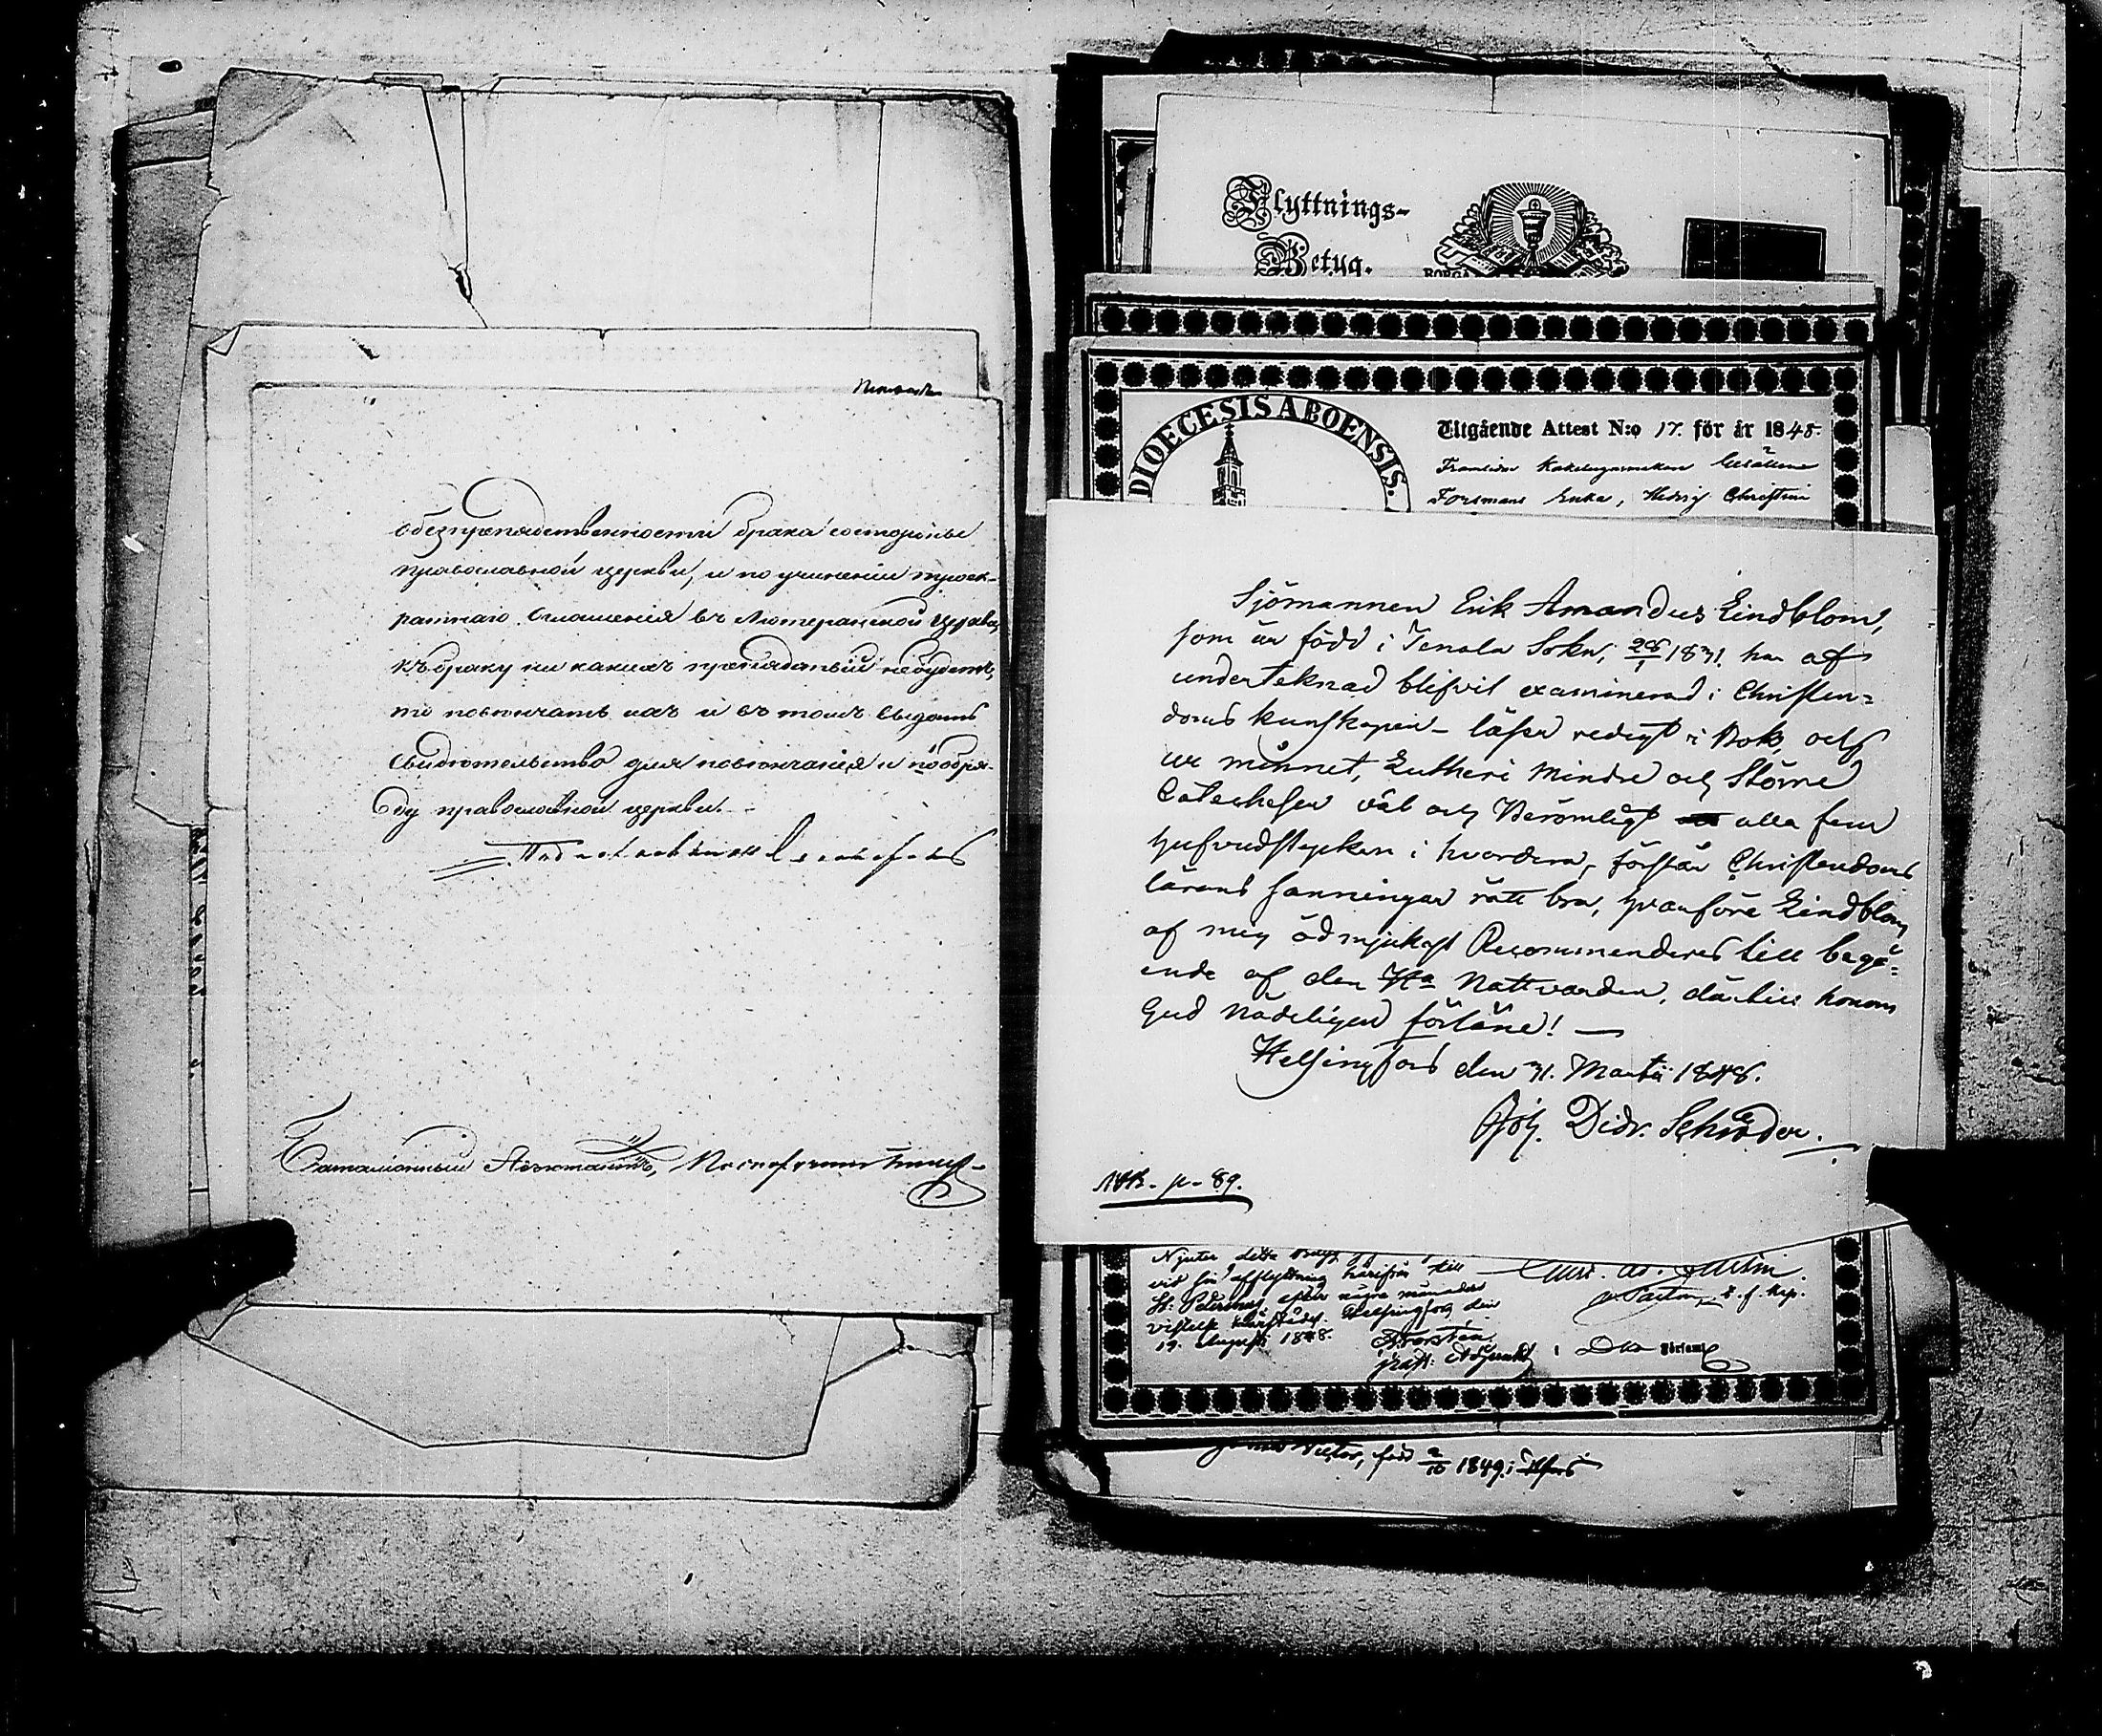 о безпрепядственности брака со стороны
православной церкви, и по учинении троек-
ратнаго оглашения въ Лютеранской церкви,
къ браку ни какихъ препядствий не будетъ,
то повенчать ихъ и въ томъ выдать
свидетельство для повенчания и по обря-
ду православной церкви.
Подполковникъ
Баталионный Адъютантъ, Прапорщикъ
Flyttnings-
Betyg.
BORGÅ
DIOECESIS ABOENSIS.
Utgående Attest N:o 17. för år 1848.
Framlidne Kakelugnsmakare Gesällens
Forsmans Enka, Hedvig Christina
Sjömannen Erik Amandus Lindblom,
som är född i Tenala Sokn, 28/1 1831. har af
undertecknad blifvit examinerad i Christen-
doms kunskapen - läser redigt i Bok, och
ur minnet, Lutheri Mindre och Större
Catecheser väl och Berömligt alla fem
hufvudstycken i hvardera, förstår Christendoms
lärans sanningar rätt bra, hvarföre Lindblom
af mig ödmjukast Recommenderas till begå-
ende af den Ha Nattvarden, därtill honom
Gud Nådeligen förläne! —
Helsingfors den 31. Martii 1848.
Joh. Didr. Schröder.
NB. p. 89.
Njuter detta
vid sin afflyttning härifrån till
St: Petersburg efter några månaders
vistelse härstädes. Helsingfors den
19. Augusti 1848.
Victor, född 2/10 1849 i Hfors